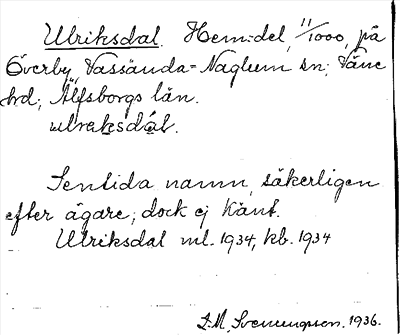 Ulriksdal. Hem:del, 11/1000, på
Överby, Vassända-Naglum sn; Väne
hd; Älfsborgs län.
ulreksdál.
Sentida namn, säkerligen
efter ägare; dock ej känt.
Ulriksdal ml. 1934, kb. 1934
Svenungson. 1936.